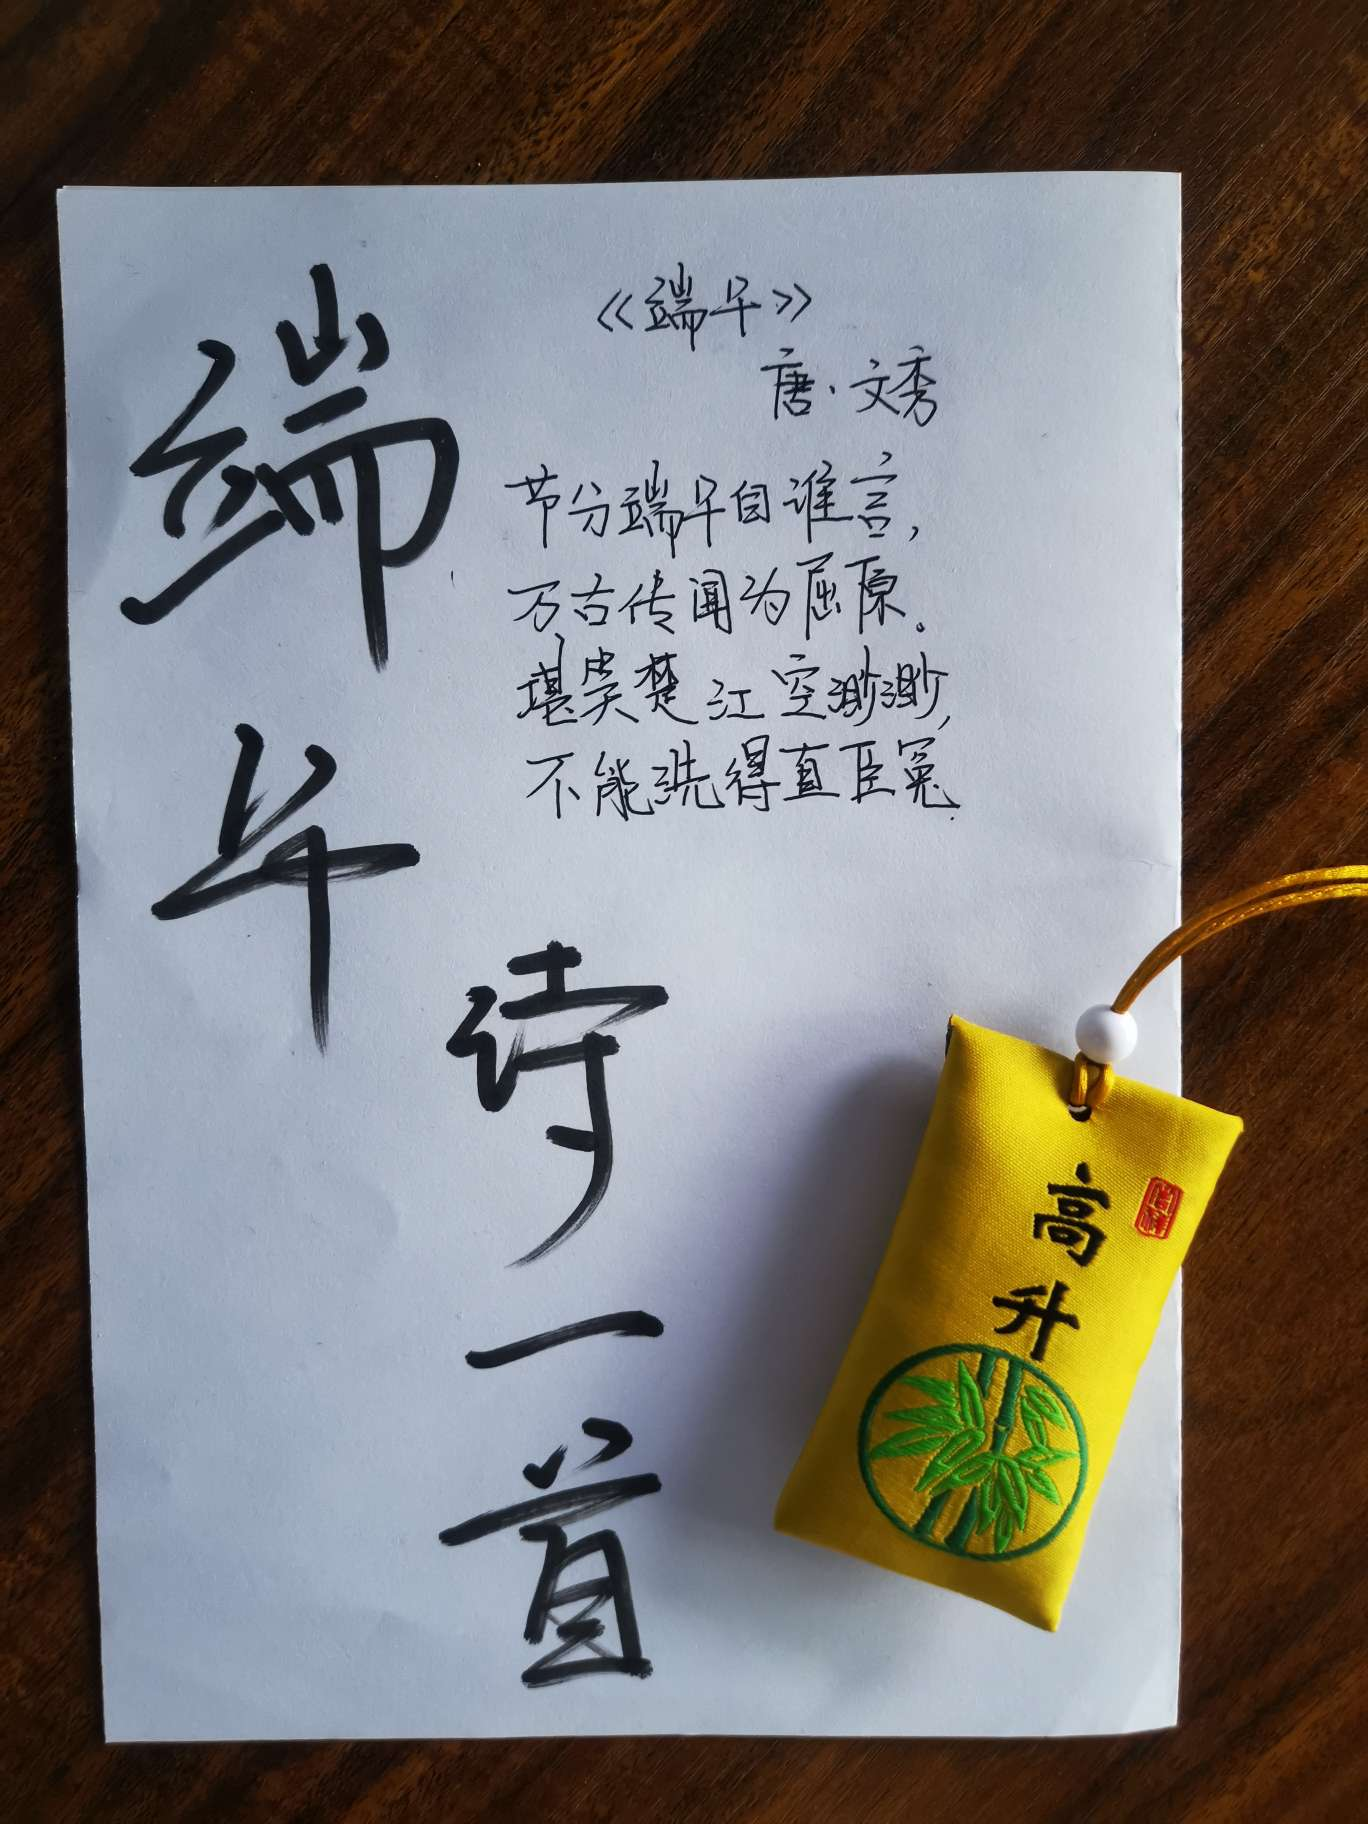 端午
诗一首
《端午》
唐·文秀
节分端午自谁言,
万古传闻为屈原。
堪笑楚江空渺渺,
不能洗得直臣冤.
高升
吉祥